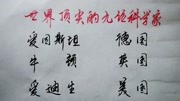 世界顶尖的九位科学家
爱因斯坦 德国
牛 顿 英国
爱迪生 美国